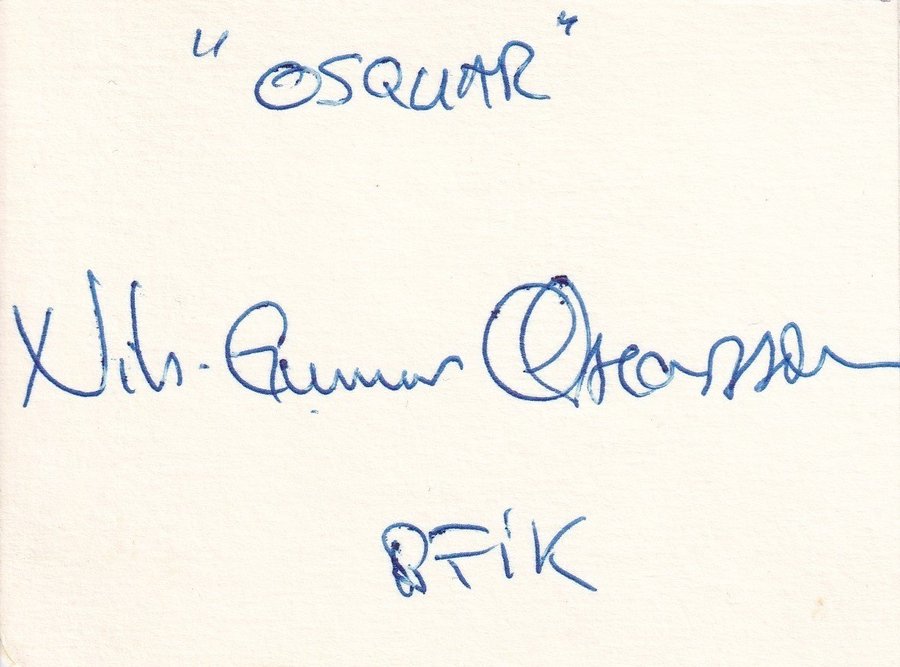 "OSQUAR"
Nils-Gunnar Oscarsson
BFIK